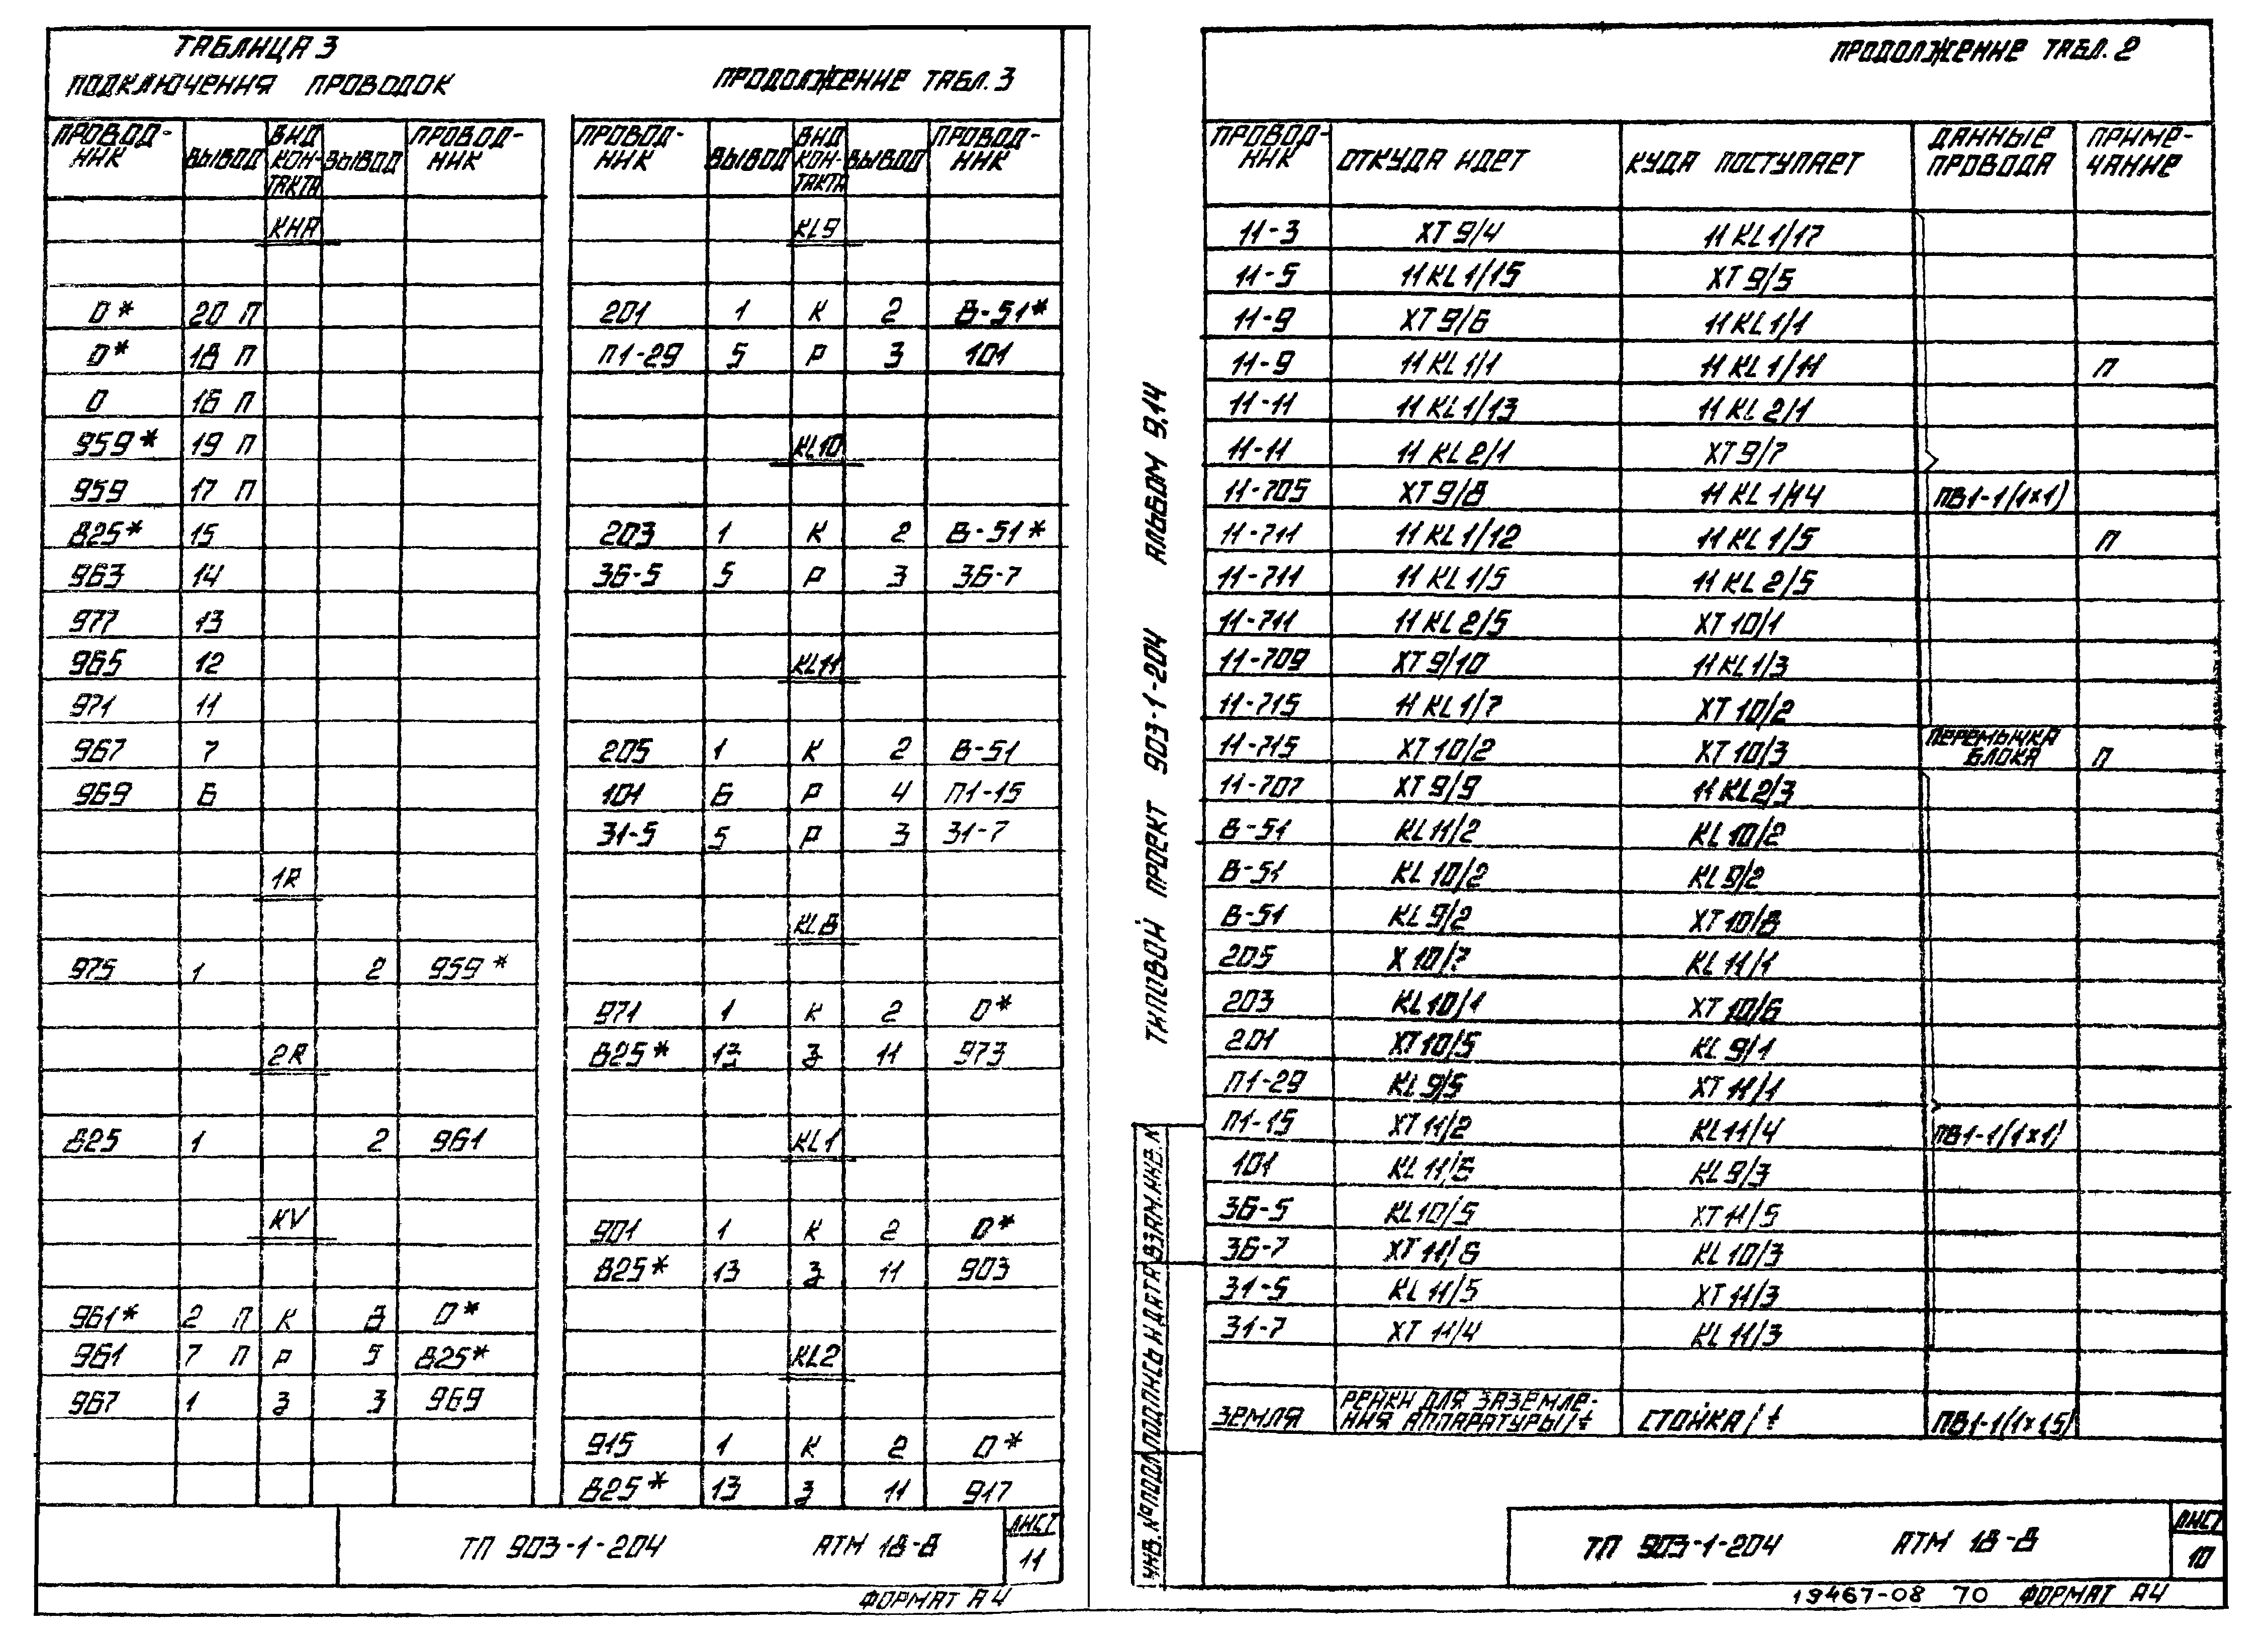 ТАБЛИЦА 3
ПОДКЛЮЧЕНИЯ ПРОВОДОК
ПРОДОЛЖЕНИЕ ТАБЛ. 3
ПРОВОД-НИК ВЫВОД ВИД КОН-ТАКТА ВЫВОД ПРОВОД-НИК
КНА
0* 20 П
0* 18 П
0 16 П
959* 19 П
959 17 П
825* 15
963 14
977 13
965 12
971 11
967 7
969 6
1R
975 1 2 959*
2R
825 1 2 961
KV
961* 2 П К 8 0*
961 7 П Р 5 825*
967 1 З 3 969
ПРОВОД-НИК ВЫВОД ВИД КОН-ТАКТА ВЫВОД ПРОВОД-НИК
KL9
201 1 К 2 В-51*
П1-29 5 Р 3 101
KL10
203 1 К 2 В-51*
3Б-5 5 Р 3 3Б-7
KL11
205 1 К 2 В-51
101 6 Р 4 П1-15
31-5 5 Р 3 31-7
KL8
971 1 К 2 0*
825* 13 З 11 973
KL1
901 1 К 2 0*
825* 13 З 11 903
KL2
915 1 К 2 0*
825* 13 З 11 917
ТП 903-1-204 АТМ 18-8
ЛИСТ
11
ФОРМАТ А4
ПРОДОЛЖЕНИЕ ТАБЛ. 2
ПРОВОД-НИК ОТКУДА ИДЕТ КУДА ПОСТУПАЕТ ДАННЫЕ ПРОВОДА ПРИМЕ-ЧАНИЕ
11-3 ХТ 9/4 11 KL 1/17
11-5 11 KL 1/15 ХТ 9/5
11-9 ХТ 9/6 11 KL 1/1
11-9 11 KL 1/1 11 KL 1/11 П
11-11 11 KL 1/13 11 KL 2/1
11-11 11 KL 2/1 ХТ 9/7
11-705 ХТ 9/8 11 KL 1/14 ПВ1-1(1×1)
11-711 11 KL 1/12 11 KL 1/5 П
11-711 11 KL 1/5 11 KL 2/5
11-711 11 KL 2/5 ХТ 10/1
11-709 ХТ 9/10 11 KL 1/3
11-715 11 KL 1/7 ХТ 10/2
11-715 ХТ 10/2 ХТ 10/3 ПЕРЕМЫЧКА БЛОКА П
11-707 ХТ 9/9 11 KL 2/3
В-51 KL 11/2 KL 10/2
В-51 KL 10/2 KL 9/2
В-51 KL 9/2 ХТ 10/8
205 Х 10/7 KL 11/1
203 KL 10/1 ХТ 10/6
201 ХТ 10/5 KL 9/1
П1-29 KL 9/5 ХТ 11/1
П1-15 ХТ 11/2 KL 11/4 ПВ1-1(1×1)
101 KL 11/6 KL 9/3
3Б-5 KL 10/5 ХТ 11/5
3Б-7 ХТ 11/6 KL 10/3
31-5 KL 11/5 ХТ 11/3
31-7 ХТ 11/4 KL 11/3
ЗЕМЛЯ РЕЙКИ ДЛЯ ЗАЗЕМЛЕ-НИЯ АППАРАТУРЫ/⏚ СТОЙКА/⏚ ПВ1-1(1×1,5)
ТП 903-1-204 АТМ 18-8
ЛИСТ
10
19467-08 70 ФОРМАТ А4
ТИПОВОЙ ПРОЕКТ 903-1-204 АЛЬБОМ 9.14
ИНВ. № ПОДЛ. ПОДПИСЬ И ДАТА ВЗАМ ИНВ. N